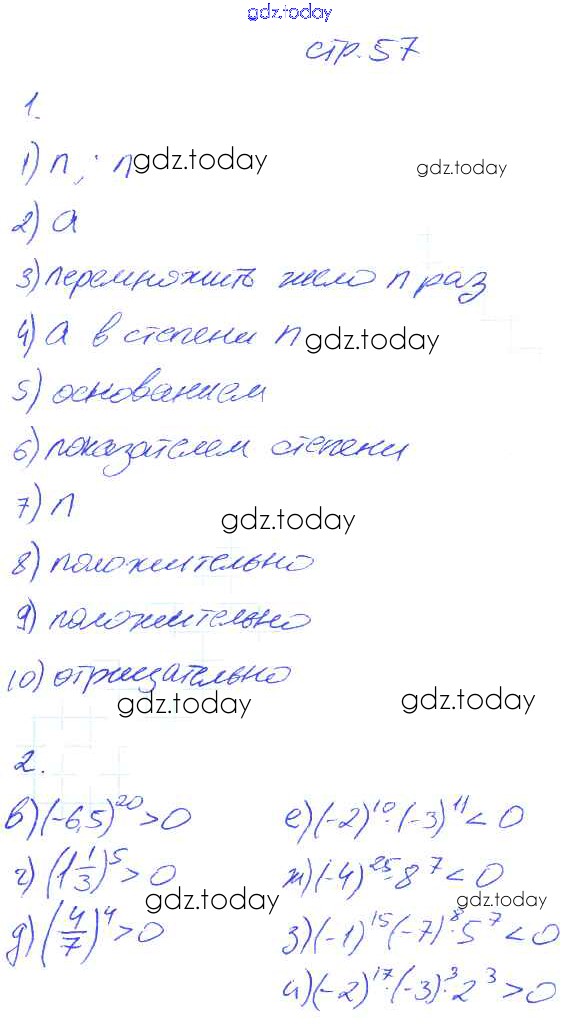 gdz.today
стр. 57
1.
1) n ; n gdz.today gdz.today
2) a
3) перемножить число n раз
4) a в степени n gdz.today
5) основанием
6) показателем степени
7) n
gdz.today
8) положительно
9) положительно
10) отрицательно
gdz.today gdz.today
2.
в) (-6,5)^20 > 0
г) (1 1/3)^5 > 0
д) (4/7)^4 > 0
gdz.today
е) (-2)^10 · (-3)^11 < 0
ж) (-4)^25 · 8^7 < 0
gdz.today
з) (-1)^15 (-7)^8 · 5^7 < 0
и) (-2)^17 · (-3)^3 · 2^3 > 0